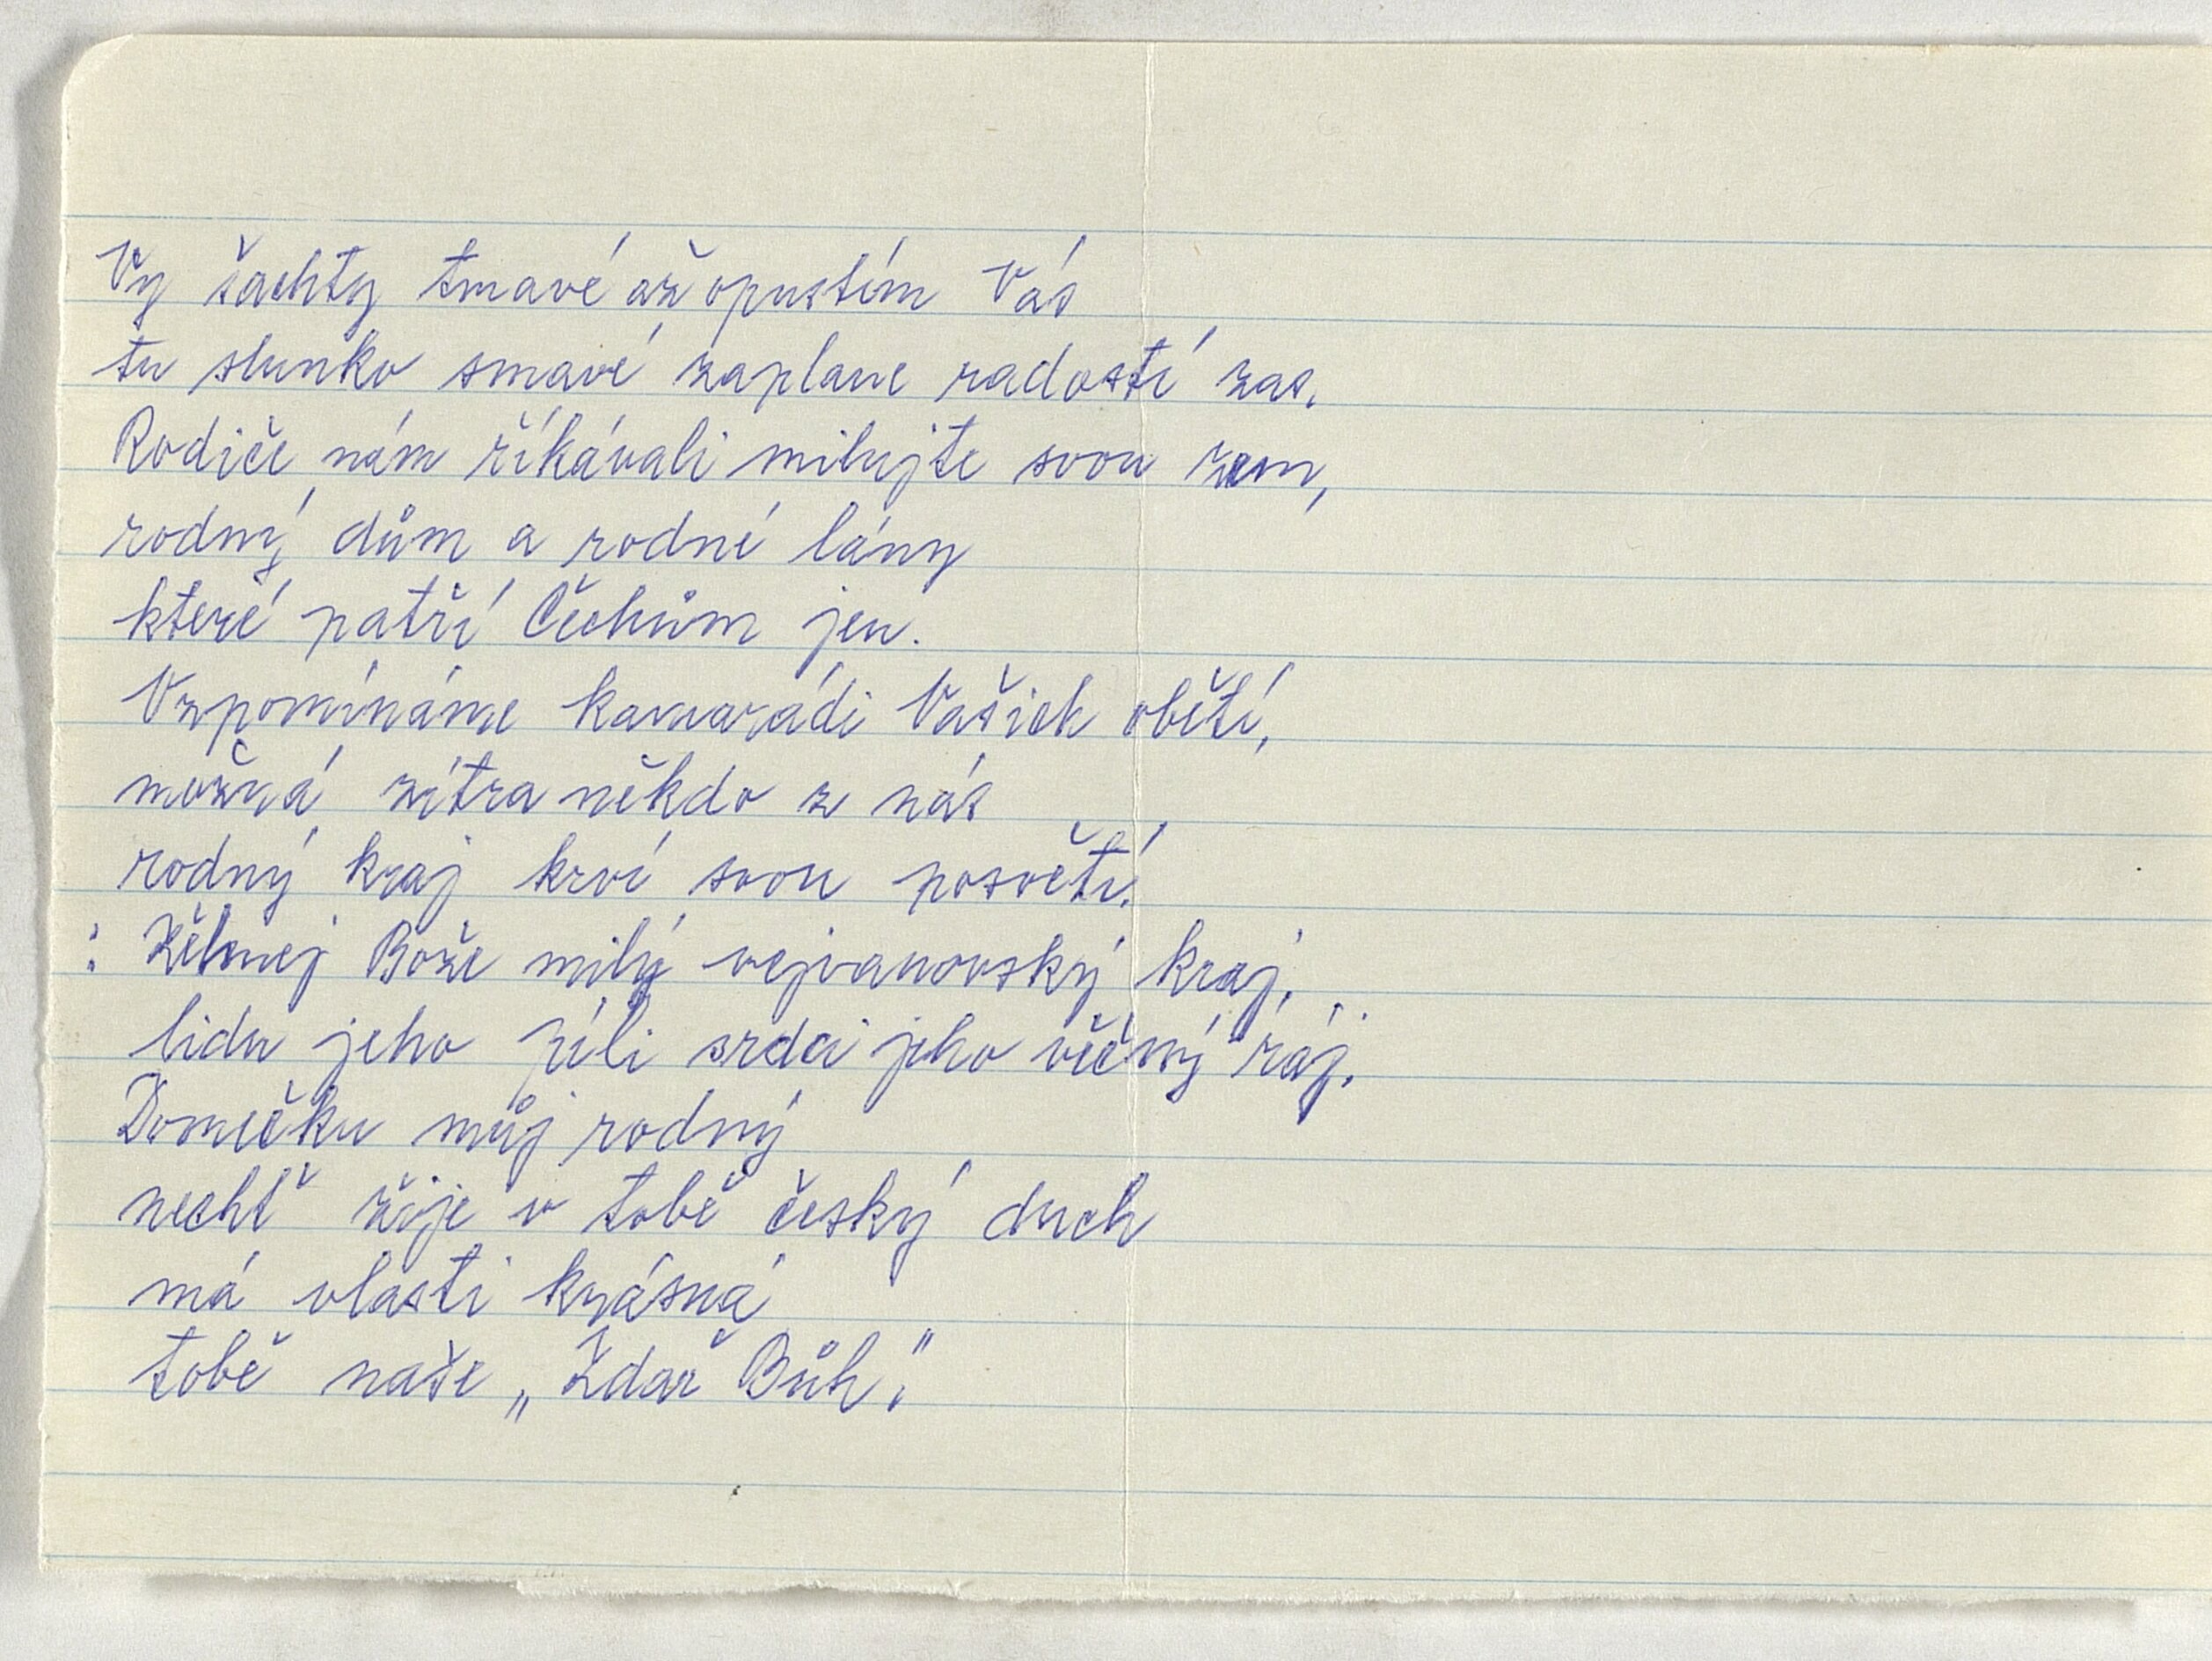 Vy šachty tmavé až opustím Vás
tu slunko smavé zaplane radostí zas.
Rodiče nám říkávali milujte svou zem,
rodný dům a rodné lány
které patří Čechům jen.
Vzpomínáme kamarádi Vašich obětí,
možná zítra někdo z nás
rodný kraj krví svou posvětí.
: Žehnej Bože milý vejvanovský kraj,
lidu jeho píli srdci jeho věčný ráj.
Domečku můj rodný
nechť žije v tobě český duch
má vlasti krásná
tobě naše „Zdař Bůh."